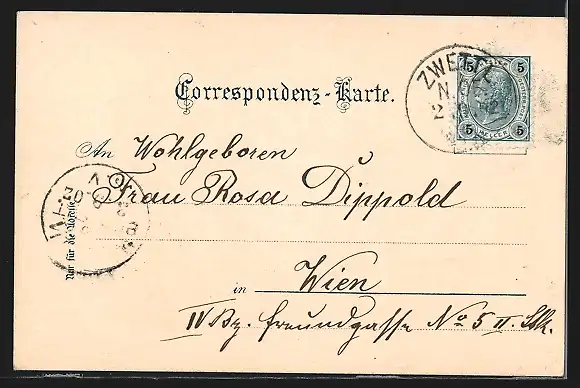 Correspondenz-Karte.
ZWETTL
5 5
5 HELLER 5
An Wohlgeboren
Frau Rosa Dippold
Nur für die Adresse
in Wien
IV Bz. Freundgasse No 5 II. Stk.